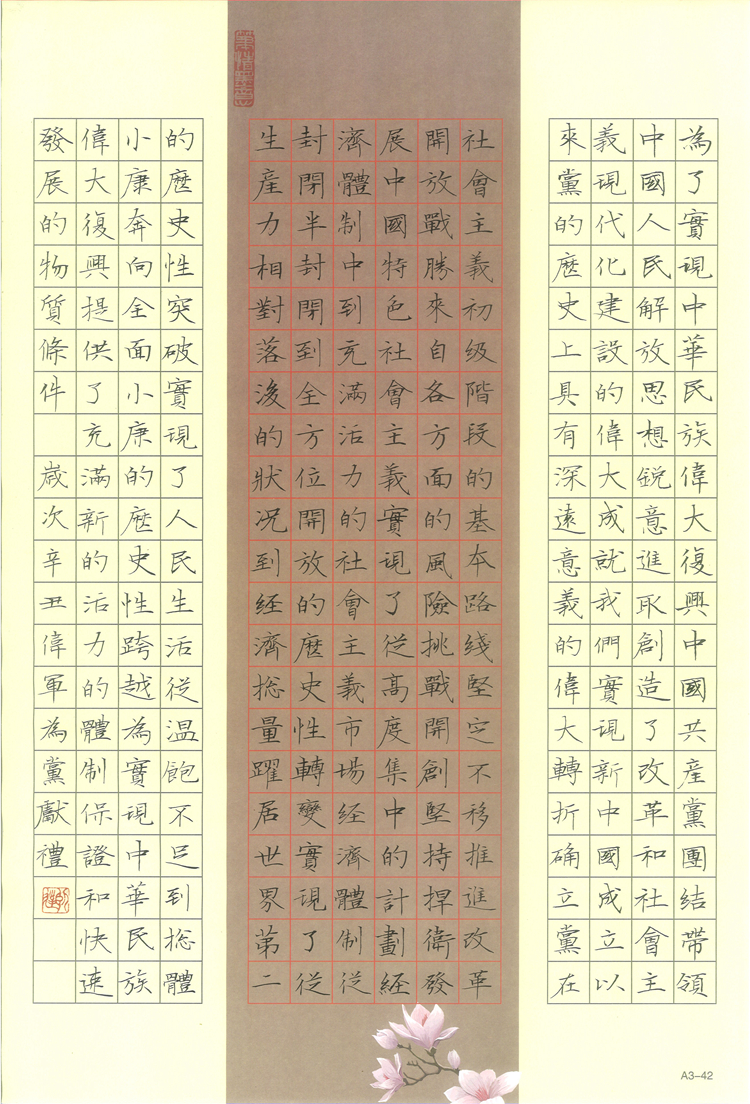 為了實現中華民族偉大復興中國共產黨團結帶領
中國人民解放思想銳意進取創造了改革和社會主
義現代化建設的偉大成就我們實現新中國成立以
來黨的歷史上具有深遠意義的偉大轉折确立黨在
社會主義初级階段的基本路线堅定不移推進改革
開放戰勝來自各方面的風險挑戰開創堅持捍衛發
展中國特色社會主義實現了從高度集中的計劃經
濟體制中到充滿活力的社會主義市场经濟體制從
封閉半封閉到全方位開放的歷史性轉變實現了從
生產力相對落後的狀況到经濟総量躍居世界第二
的歷史性突破實現了人民生活從温飽不足到総體
小康奔向全面小康的歷史性跨越為實現中華民族
偉大復興提供了充滿新的活力的體制保證和快速
發展的物質條件
歲次辛丑偉軍為黨獻禮
A3-42